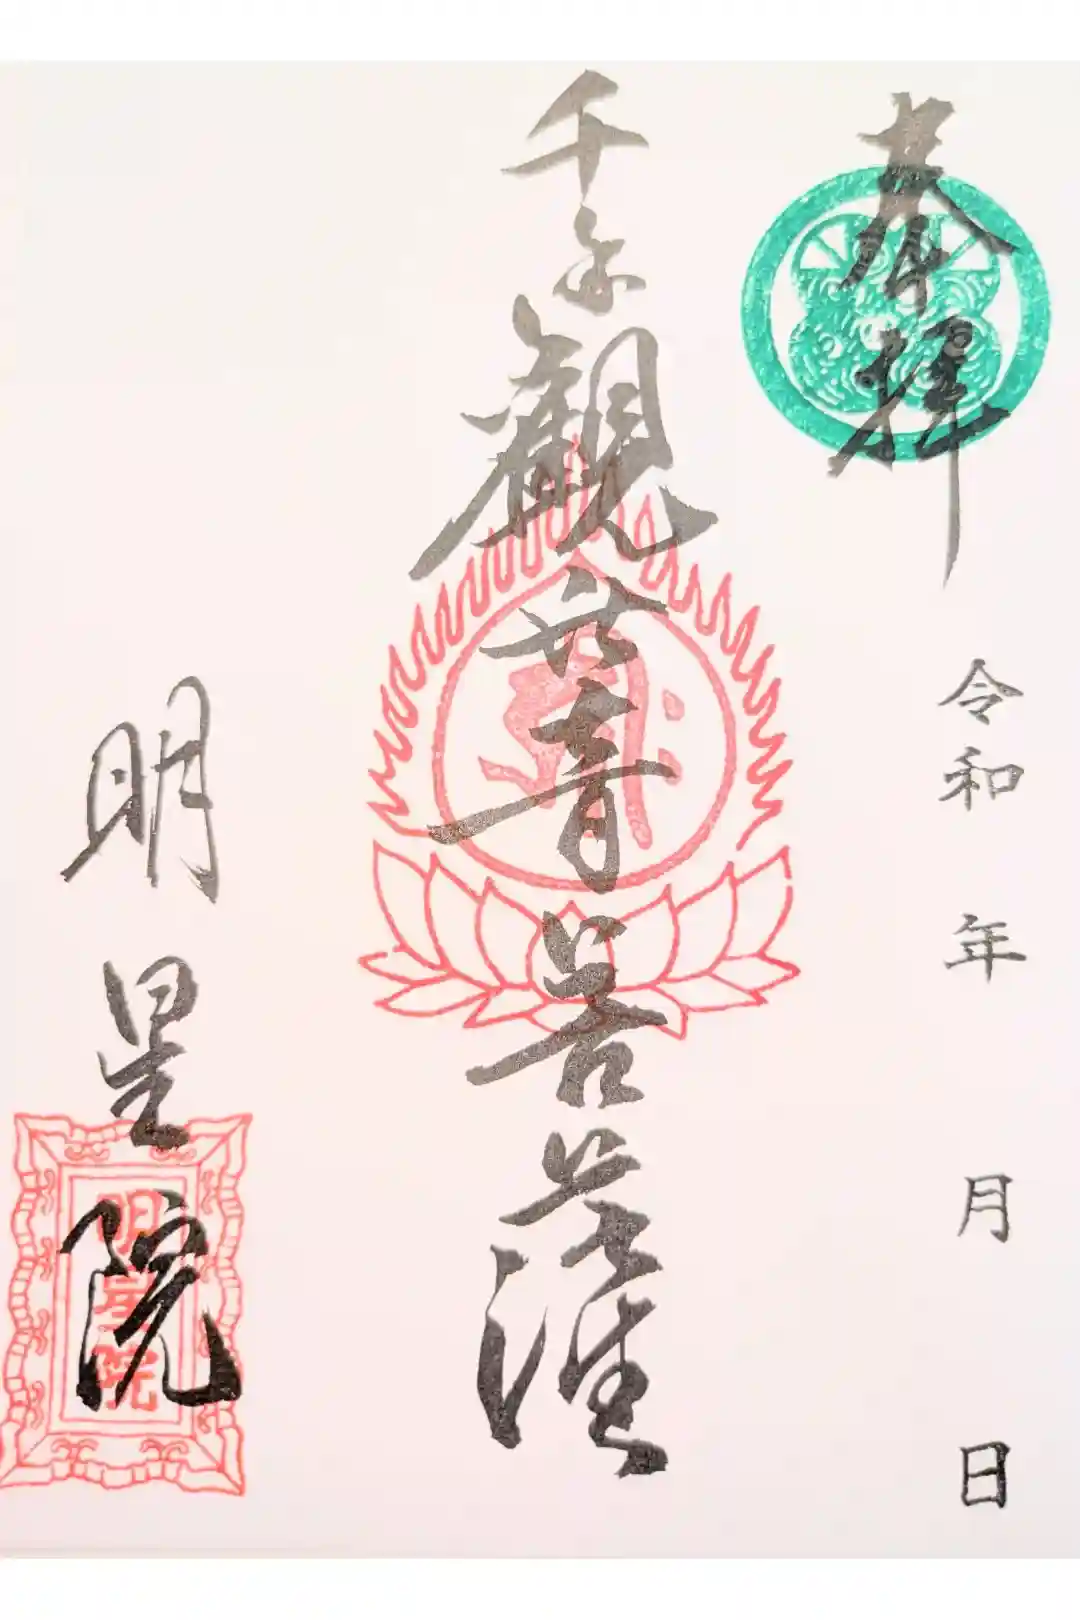 奉拝
令和 年 月 日
千手観世音菩薩
明星院
明星院